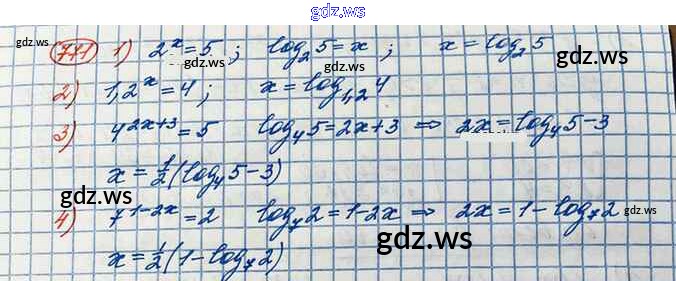 gdz.ws
711 1) 2^x = 5 ; log_2 5 = x ; x = log_2 5
gdz.ws gdz.ws gdz.ws
2) 1,2^x = 4 ; x = log_{1,2} 4
3) 4^{2x+3} = 5 log_4 5 = 2x+3 ⇒ 2x = log_4 5 - 3
x = 1/2 (log_4 5 - 3)
gdz.ws gdz.ws
4) 7^{1-2x} = 2 log_7 2 = 1-2x ⇒ 2x = 1 - log_7 2
gdz.ws gdz.ws
x = 1/2 (1 - log_7 2)
gdz.ws
gdz.ws